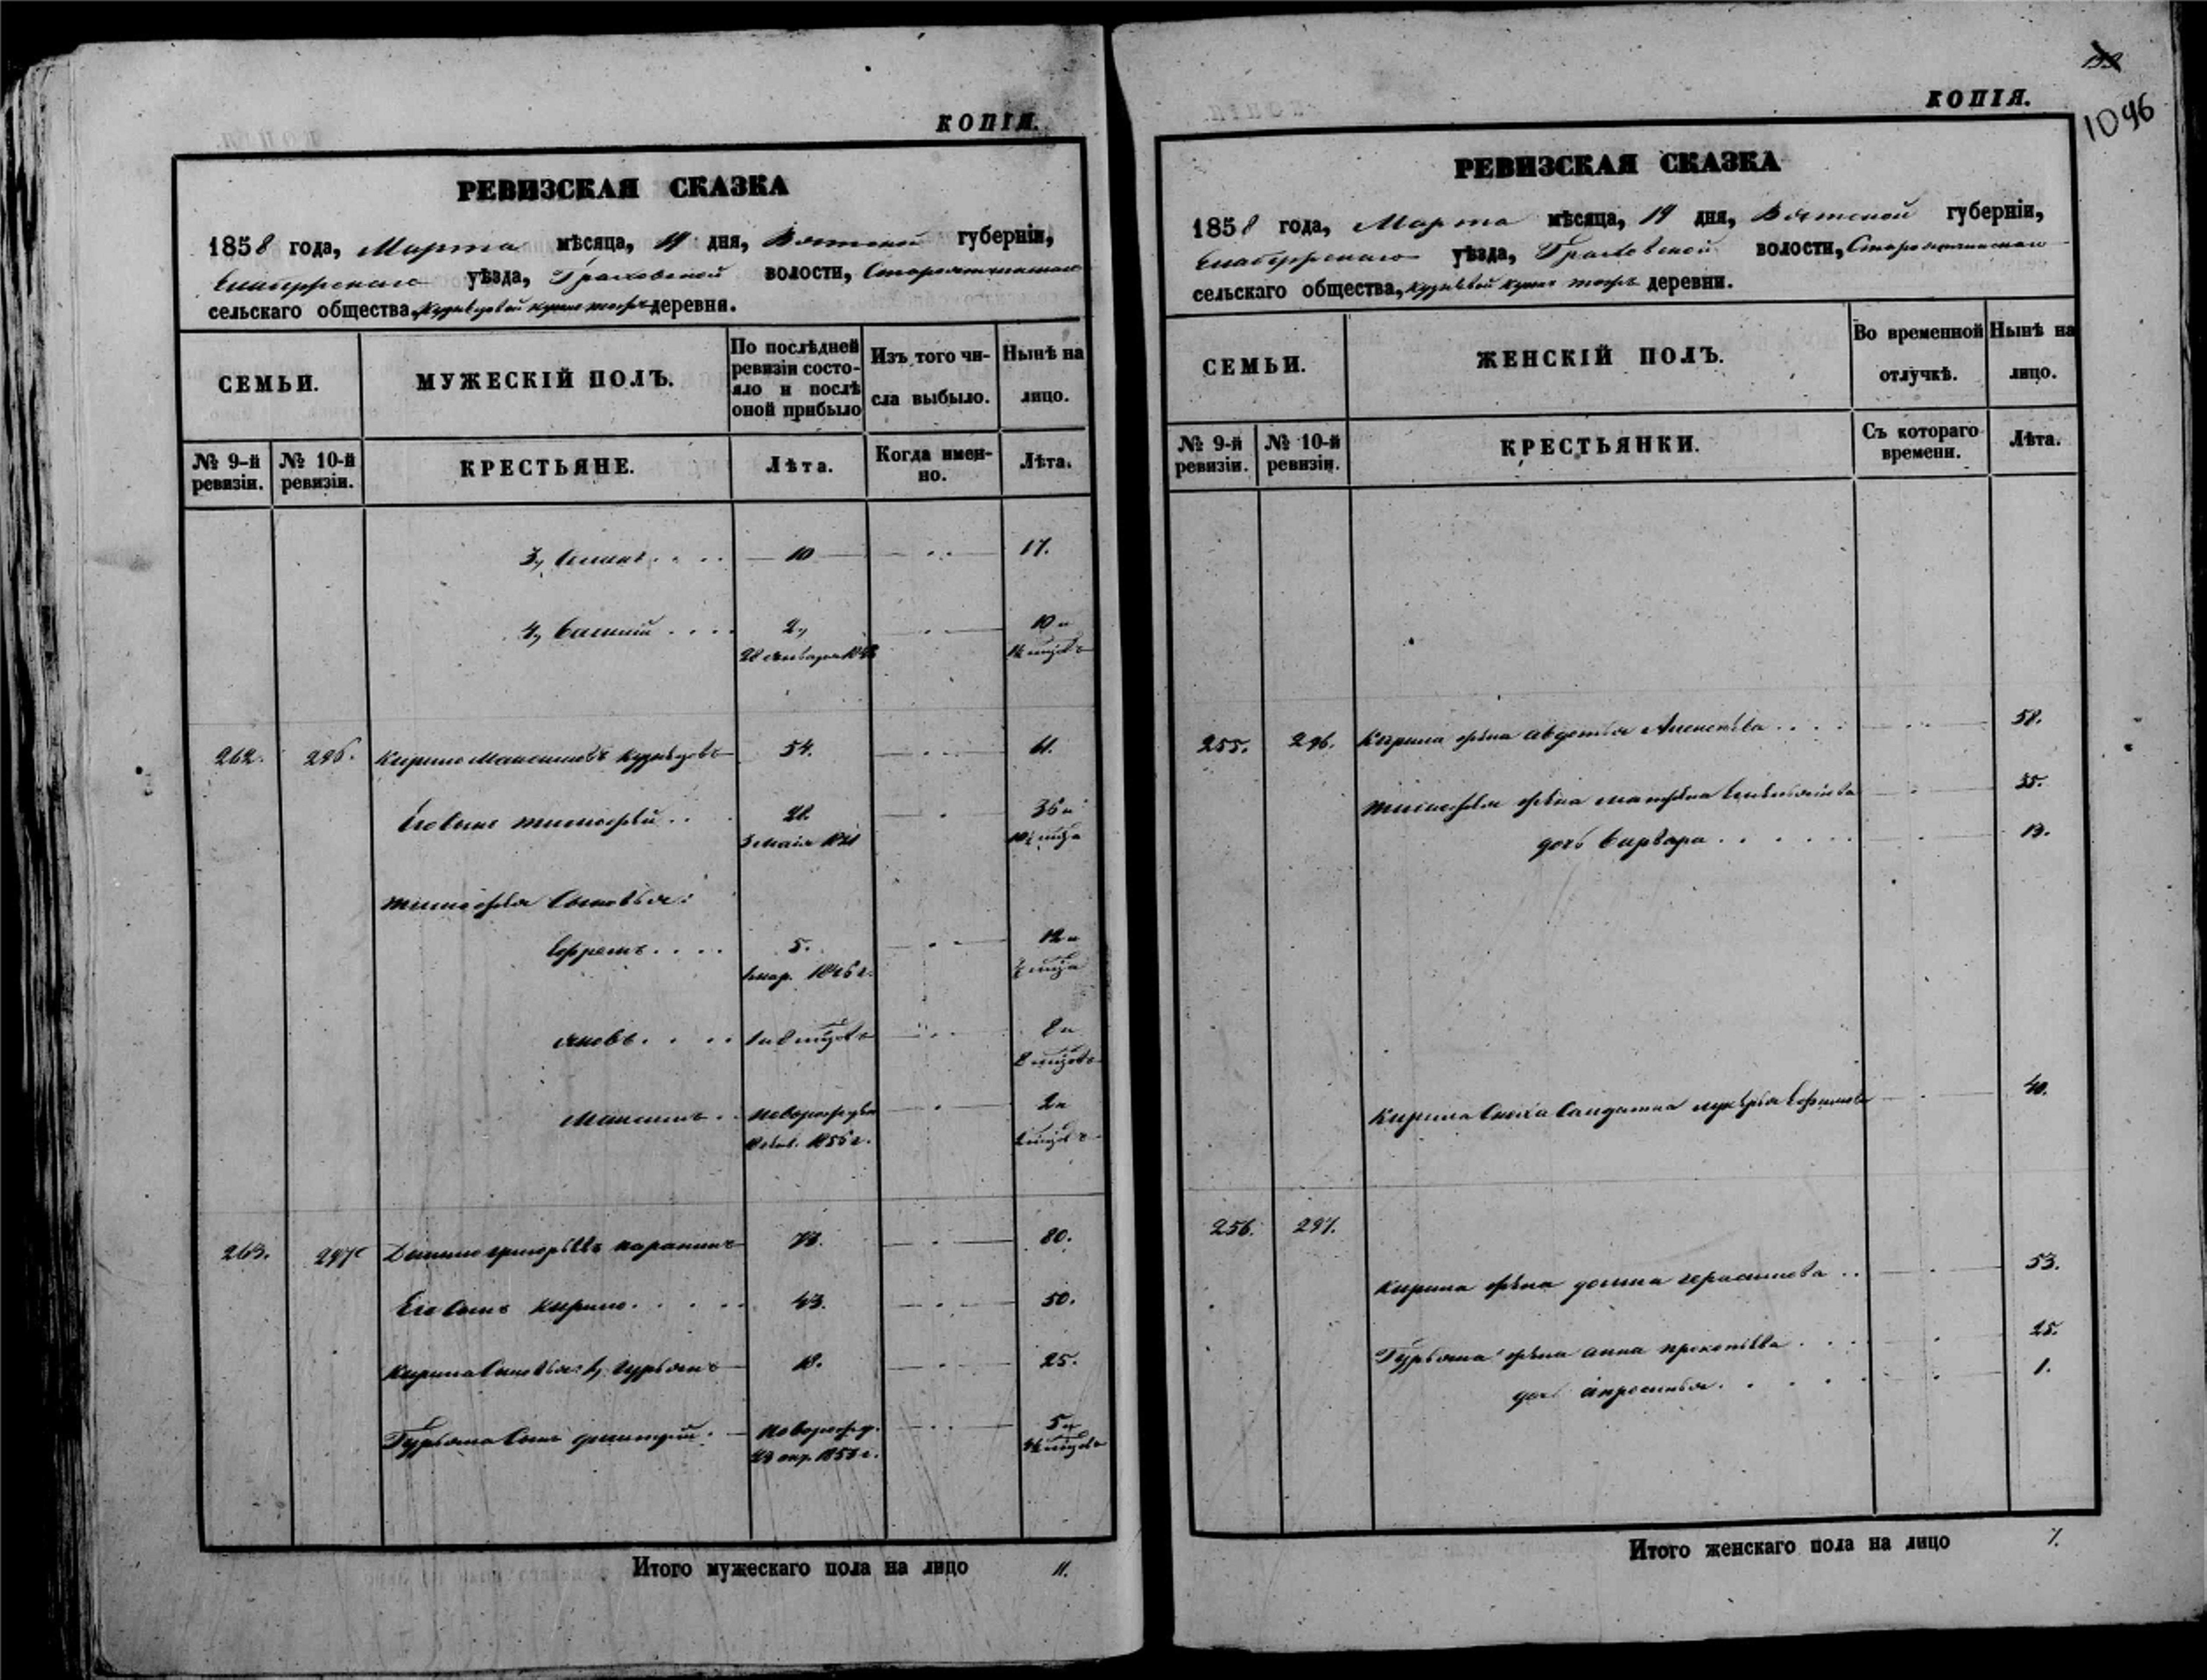 КОПІЯ.
РЕВИЗСКАЯ СКАЗКА
1858 года, Марта мѣсяца, 19 дня, Вятской губерніи,
Елабужскаго уѣзда, Граховской волости,
сельскаго общества, деревни.
СЕМЬИ.
МУЖЕСКІЙ ПОЛЪ.
По послѣдней ревизіи состояло и послѣ оной прибыло
Изъ того числа выбыло.
Нынѣ на лицо.
№ 9-й ревизіи.
№ 10-й ревизіи.
КРЕСТЬЯНЕ.
Лѣта.
Когда именно.
Лѣта.
3, 10 17.
4, Василій 2, 10 и
262. 296. Кирило Максимовъ Кузнецовъ 54. 61.
Его сынъ Тимофей 28. 35 и
3 мая 1821
Тимофея сыновья:
Ефремъ 5. 12 и
1846 г.
Яковъ 1 и 8 мѣсяцовъ 8 и
8 мѣсяцовъ
Максимъ новорожден 2 и
1856 г.
263. 297 Григорьевъ 73. 80.
Его сынъ Кирило 43. 50.
Кирила сыновья: 1, Гурьянъ 18. 25.
Гурьяна сынъ Дмитрій новорожд. 5 и
апр. 1853 г.
Итого мужескаго пола на лицо 11.
1096
КОПІЯ.
РЕВИЗСКАЯ СКАЗКА
1858 года, Марта мѣсяца, 19 дня, Вятской губерніи,
Елабужскаго уѣзда, Граховской волости,
сельскаго общества, деревни.
СЕМЬИ.
ЖЕНСКІЙ ПОЛЪ.
Во временной отлучкѣ.
Нынѣ на лицо.
№ 9-й ревизіи.
№ 10-й ревизіи.
КРЕСТЬЯНКИ.
Съ котораго времени.
Лѣта.
255. 296. Кирила жена Авдотья Алексѣева 58.
Тимофея жена 35.
дочь Варвара 13.
Кирила сноха солдатка Лукерья 40.
256. 297.
Кирила жена Домна Герасимова 53.
Гурьяна жена Анна Прокопьева 25.
дочь Апросинья 1.
Итого женскаго пола на лицо 7.